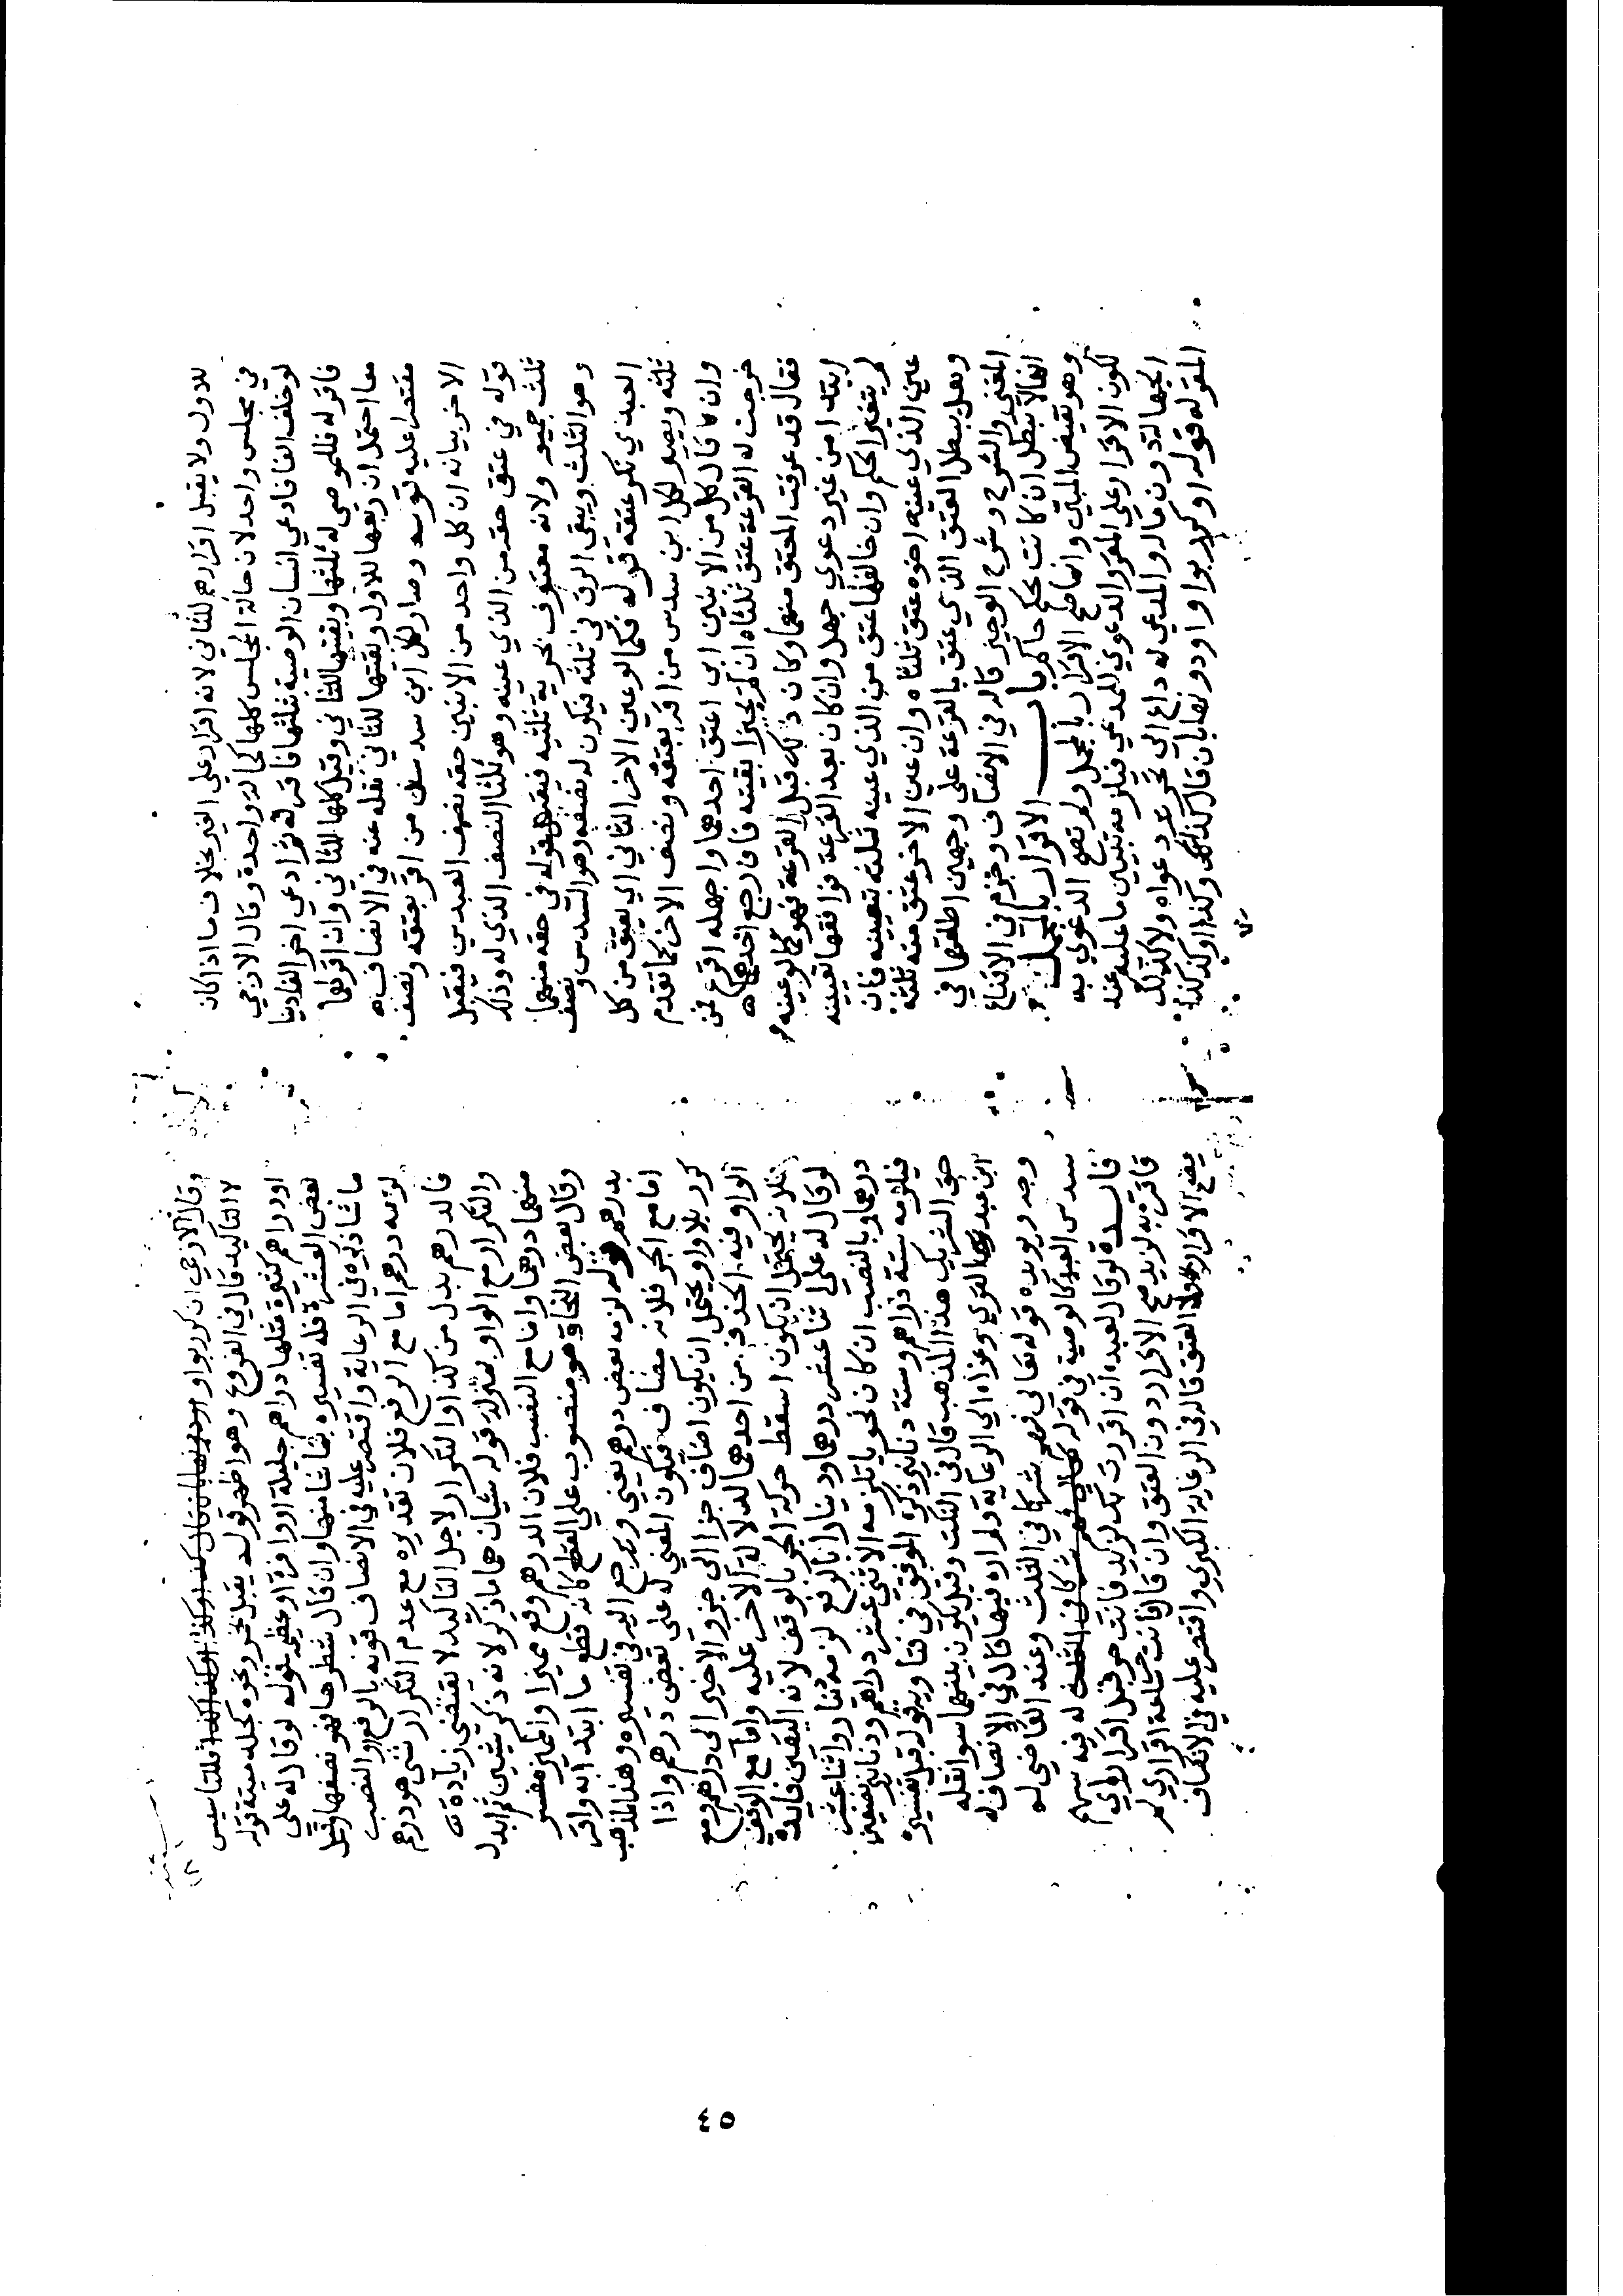 للاول ولا يقبل اقراره للثاني لانه اقرار علي الغير بخلاف ما اذا كان
في مجلس واحد لان حالة المجلس كلها كحالة واحدة وقال الازجي
لو خلف الفا فادعي انسان الوصية بثلثها فاقر له ثم ادعي اخر الفا دينا
فاقر له فللموصي له ثلثها وبقيتها للثاني وقيل كلها للثاني وان اقر لهما
معا احتمل ان ربعها للاول وبقيتها للثاني نقله عنه في الانصاف
مقتصرا عليه قوله وصار لكل ابن سدس من اقر بعتقه ونصف
الاخر بيانه ان كل واحد من الابنين حقه نصف العبدين فيقبل
قوله في عتق حقه من الذي عينه وهو ثلثا النصف الذي له وذلك
ثلث جميعه ولانه معترف بحرية ثلثيه فيقبل قوله في حقه منهما
وهو الثلث ويبقي الرق في ثلثه فيكون له نصفه وهو السدس ونصف
العبد الذي نكر عتقه قوله فكما لو عين الاخر الثاني اي يعتق من كل
ثلثه ويصير لكل ابن سدس من اقر بعتقه ونصف الاخر كما تقدم
وان كان قال كل من الابنين ابي اعتق احدهما واجهله اقرع فمن
خرجت له القرعة عتق ثلثاه ان لم يجيزا بقيته فان رجع احدهما
فقال قد عرفت المعتق منهما وكان ذلك قبل القرعة فهو كما لو عينه
ابتدا من غير دعوي جهل وان كان بعد القرعة فوافقها تعيينه
لم يتغير الحكم وان خالفها عتق من الذي عينه ثلثه بتعيينه فان
عين الذي عينه اخوه عتق ثلثاه وان عين الاخر عتق منه ثلثه
وهل يبطل العتق الذي عتق بالقرعة علي وجهين اطلقهما في
المغني والشرح وشرح الوجيز قال في الانصاف وجزم في الاقناع
انها لا تبطل ان كانت بحكم حاكم باب الاقرار بالمجمل
وهو نقيض المبين وانما صح الاقرار بالمجمل ولم تصح الدعوي به
لكون الاقرار علي المقر والدعوي للمدعي فيلزمه تبيين ما عليه عند
الجهالة دون ماله والمدعي له داع الي تحرير دعواه ولا كذلك
المقر له قوله او كرر بواو او دونها بان قال كذا وكذا او كذا كذا
وقال الازجي ان كرر بواو فللتاسيس
لا التاكيد قال في الفروع وهو اظهر قوله يقبل بخمر ونحوه كجلد ميتة قوله
او دراهم كثيرة مثلها دراهم جليلة او وافرة او عظيمة قوله لو قال له علي
بعض العشرة فله تفسيره بما شا منها وان قال شطرها فهو نصفها وقيل
ما شا ذكره في الرعاية واقتصر عليه في الانصاف قوله بالرفع او النصب
لزمه درهم اما مع الرفع فلان تقديره مع عدم التكرار شي هو درهم
فالدرهم بدل من كذا والتكرار لاجل التاكيد لا يقتضي زيادة
والتكرار مع الواو بمنزلة قوله شيان هما درهم لانه ذكر شيئين ثم ابدل
منهما درهما واما مع النصب فلان الدرهم وقع مميزا والمميز مفسر
وقال بعض النحاة هو منصوب علي القطع كانه قطع ما ابتدا به واقر
بدرهم قوله لزمه بعض درهم يعني ويرجع اليه في تفسيره وهذا المذهب
اما مع الجر فلانه مضاف فيكون المعني له علي بعض درهم واذا
كرر بلا واو يحتمل ان يكون اضاف جزا الي جزء والاخير الي درهم ومع
الواو فيه الحذف من احدهما لدلالة الاخر عليه واما مع الوقف
فلانه يحتمل ان يكون اسقط حركة الجر بالوقف لانه اليقين فايدة
لو قال له علي اثنا عشر درهما ودينارا بالرفع لزمه دينار واثنا عشر
درهما وبالنصب ان كان نحويا تلزمه الاثني عشر دراهم ودنانير نصفين
فيلزمه ستة دراهم وستة دنانير ذكره الموفق في فتاويه قوله قبل تفسيره
حق الشريك هذا المذهب قال في النكت وقيل يكون بينهما سوا نقله
ابن عبد القوي وعزاه الي الرعاية ولم اره فيها قال في الانصاف له
وجه ويويده قوله تعالي فهم شركا في الثلث وعند القاضي له
سدس العبد كالوصية في قوله له فيه سهم
فايدة لو قال لعبده ان اقررت بك لزيد فانت حر قبل اقراري
فاقر به لزيد صح الاقرار دون العتق وان قال فانت حر ساعة اقراري لم
يصح الاقرار ولا العتق قاله في الرعاية الكبري واقتصر عليه في الانصاف
٤٥